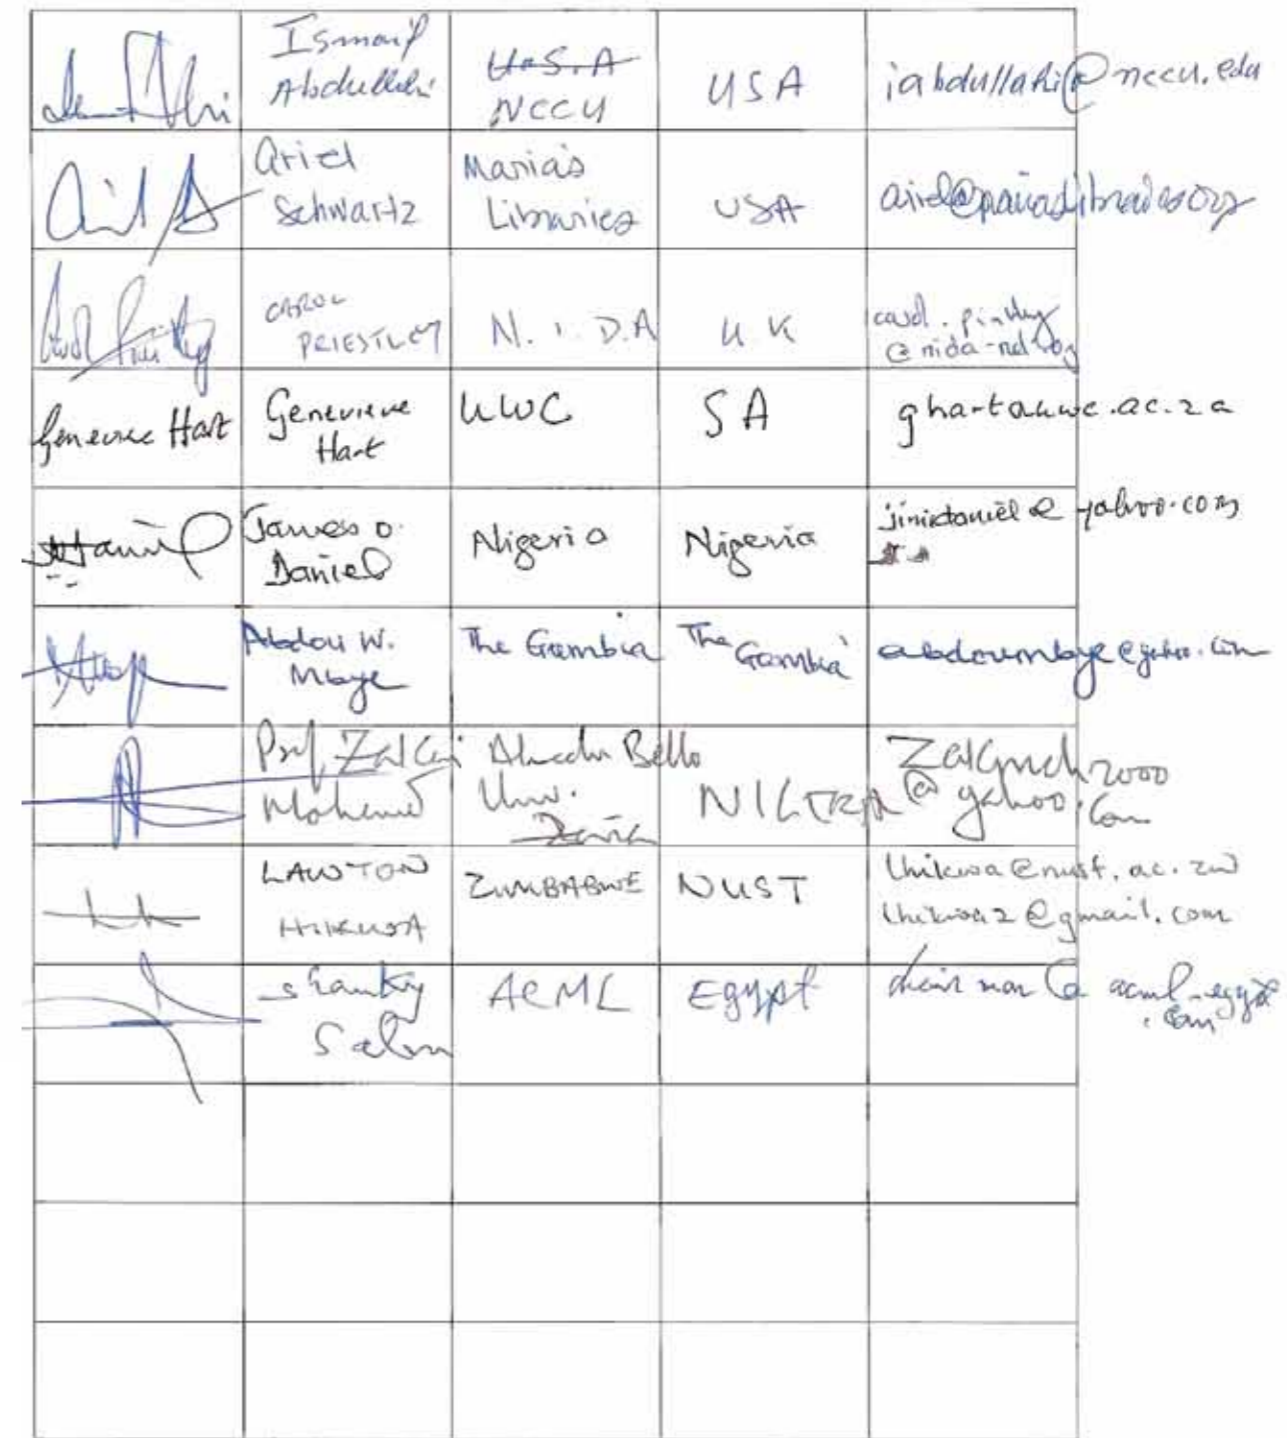 Ismail
Abdullahi
U.S.A
NCCU
USA
iabdullahi@nccu.edu
Ariel
Schwartz
Maria's
Libraries
USA
ariel@mariaslibraries.org
CAROL
PRIESTLEY
N.I.D.A
UK
carol.priestley
@nida-net.org
Genevieve Hart
Genevieve
Hart
UWC
SA
ghart@uwc.ac.za
James O.
Daniel
Nigeria
Nigeria
@yahoo.com
Abdou W.
Mbye
The Gambia
The Gambia
abdoumbye@yahoo.com
Prof Zakari
Mohammed
Ahmadu Bello
Univ.
Zaria
NIGERIA
2000
@yahoo.com
LAWTON
HIKWA
ZIMBABWE
NUST
lhikwa@nust.ac.zw
lhikwa2@gmail.com
Shawky
Salem
ACML
Egypt
chairman@acml-egypt
.com